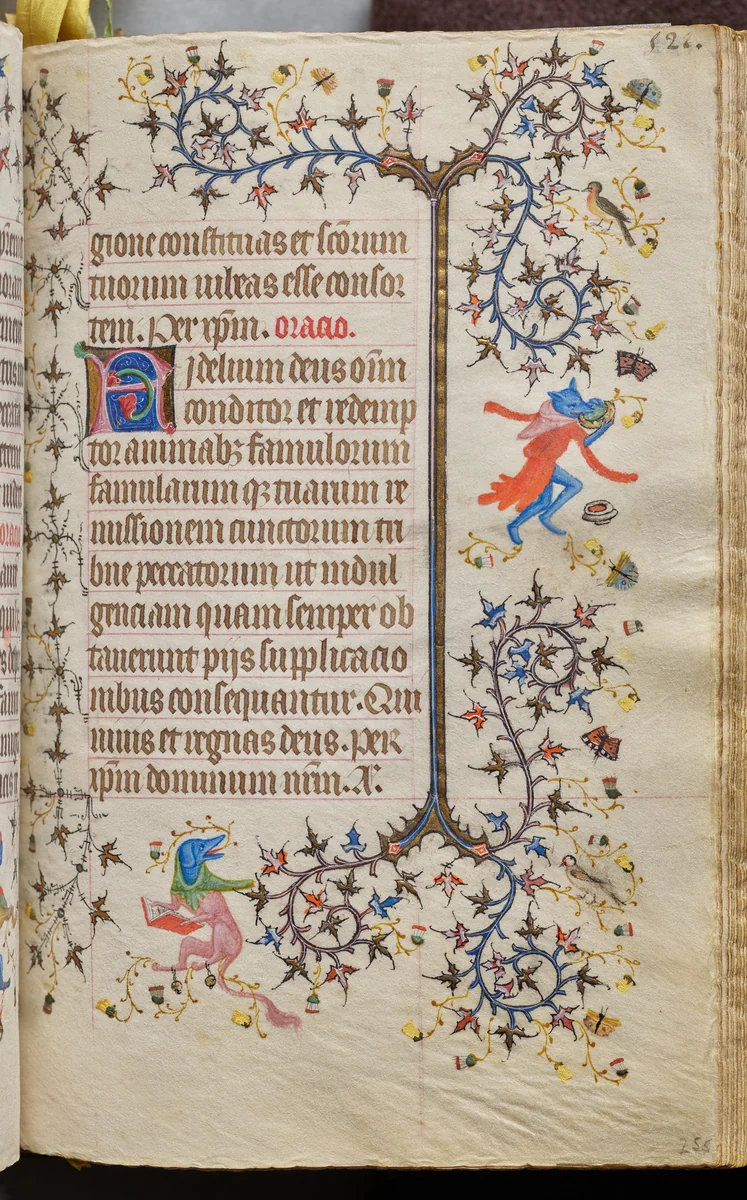 121.
gione constituas et sc̄orum
tuorum iubeas esse consor
tem. Per xp̄m. oracio.
Fidelium deus om̄
conditor et redemp
tor animabꝫ famulorum
famularum qꝫ tuarum re
missionem cunctorum tri
bue peccatorum ut indul
genciam quam semper ob
tauerunt pijs supplicacio
nibus consequantur. Qui
uiuis et regnas deus. per
xp̄m dominum nr̄m. A.
255